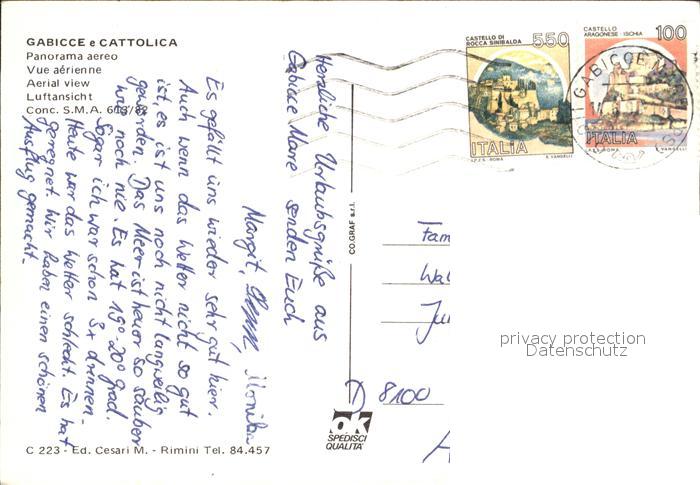 GABICCE e CATTOLICA
Panorama aereo
Vue aérienne
Aerial view
Luftansicht
Conc. S.M.A.
CASTELLO DI
ROCCA SINIBALDA
550
ITALIA
I.P.Z.S. - ROMA
E. VANGELLI
CASTELLO
ARAGONESE - ISCHIA
100
ITALIA
E. VANGELLI
GABICCE M
Herzliche Urlaubsgrüße aus
Gabicce Mare senden Euch
Margit, Monika
Es gefällt uns wieder sehr gut hier.
Auch wenn das Wetter nicht so gut
ist, es ist uns noch nicht langweilig
geworden. Das Meer ist heuer so sauber
wie noch nie. Es hat 19°-20° grad.
Sogar ich war schon 3x drinnen.
Heute war das Wetter schlecht. Es hat
geregnet. Wir haben einen schönen
Ausflug gemacht.
CO.GRAF s.r.l.
Fam
Wal
Ju
D 8100
privacy protection
Datenschutz
ok
SPEDISCI
QUALITA'
C 223 - Ed. Cesari M. - Rimini Tel. 84.457